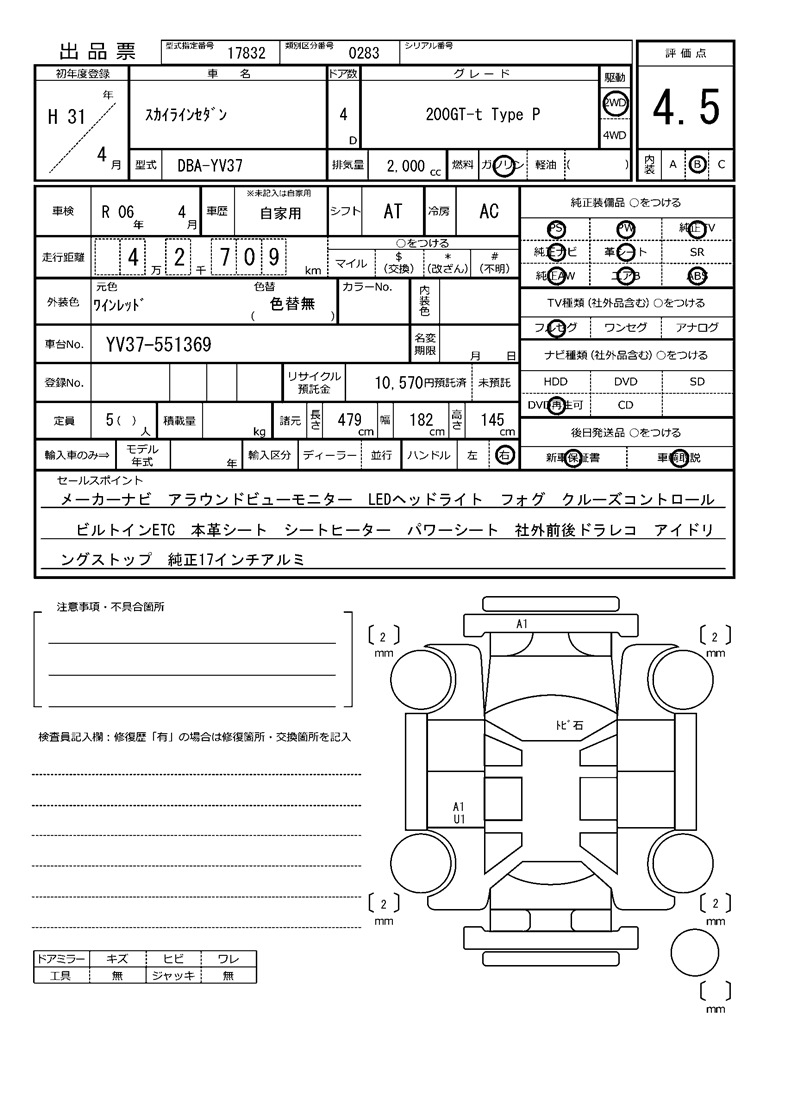 出品票 型式指定番号 17832 類別区分番号 0283 シリアル番号
評価点
4.5
内装 A B C
初年度登録 車名 ドア数 グレード 駆動
H 31 年 4 月 スカイラインセダン 4 D 200GT-t Type P 2WD 4WD
型式 DBA-YV37 排気量 2,000 cc 燃料 ガソリン 軽油 ( )
車検 R 06 年 4 月 車歴 ※未記入は自家用 自家用 シフト AT 冷房 AC
走行距離 4 万 2 千 7 0 9 km ○をつける
マイル $ (交換) * (改ざん) # (不明)
外装色 元色 ワインレッド 色替 ( 色替無 ) カラーNo. 内装色
車台No. YV37-551369 名変期限 月 日
登録No. リサイクル預託金 10,570円預託済 未預託
定員 5( ) 人 積載量 kg 諸元 長さ 479 cm 幅 182 cm 高さ 145 cm
輸入車のみ⇒ モデル年式 年 輸入区分 ディーラー 並行 ハンドル 左 右
純正装備品 ○をつける
PS PW 純正TV
純正ナビ 革シート SR
純正AW エアB ABS
TV種類(社外品含む)○をつける
フルセグ ワンセグ アナログ
ナビ種類(社外品含む)○をつける
HDD DVD SD
DVD再生可 CD
後日発送品 ○をつける
新車保証書 車輌取説
セールスポイント
メーカーナビ アラウンドビューモニター LEDヘッドライト フォグ クルーズコントロール
ビルトインETC 本革シート シートヒーター パワーシート 社外前後ドラレコ アイドリ
ングストップ 純正17インチアルミ
注意事項・不具合箇所
検査員記入欄:修復歴「有」の場合は修復箇所・交換箇所を記入
ドアミラー キズ ヒビ ワレ
工具 無 ジャッキ 無
A1
〔 2 〕 mm
〔 2 〕 mm
トビ石
A1
U1
〔 2 〕 mm
〔 2 〕 mm
〔 〕 mm